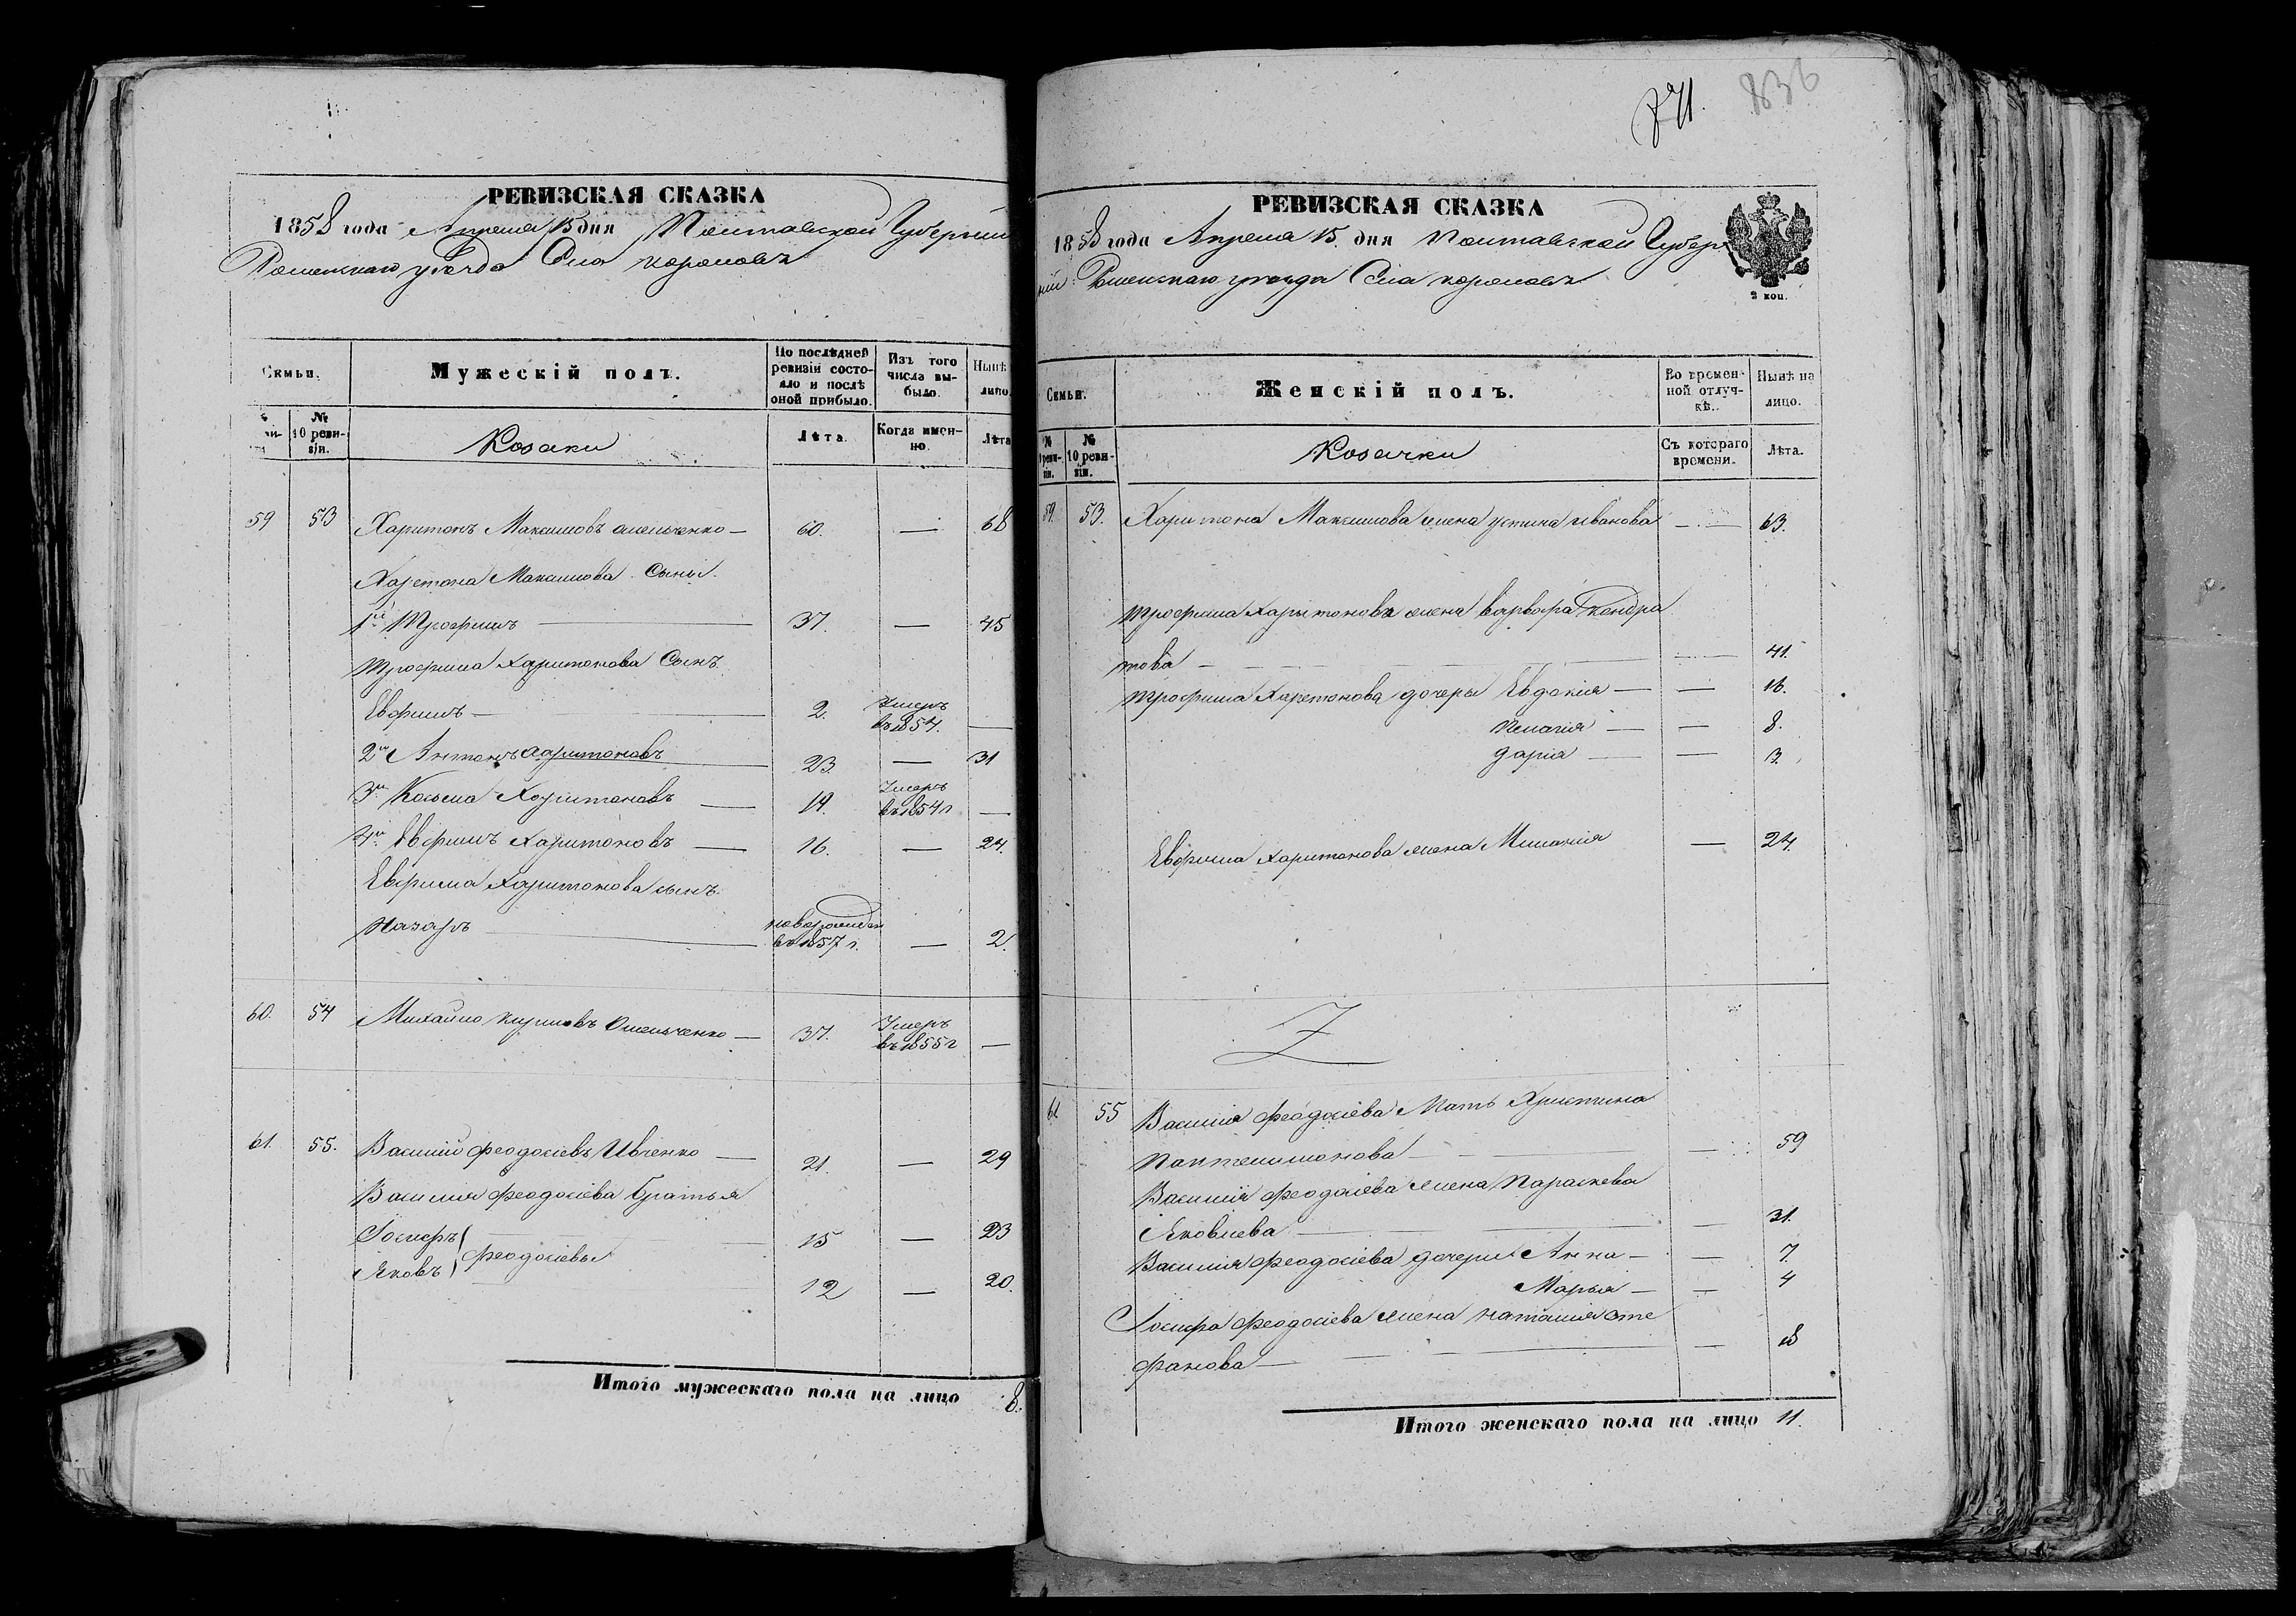 РЕВИЗСКАЯ СКАЗКА
1858 года Апреля 15 дня Полтавской Губернии
Роменскаго уезда Села коровов
Семьи.
Мужескій полъ.
По послѣдней ревизіи состояло и послѣ оной прибыло.
Изъ того числа выбыло.
Нынѣ лицо.
№ 10 ревизіи.
Козаки
Лѣта.
Когда именно.
Лѣта
59 53 Харитонъ Максимовъ омельченко — 60. — 68
Харитона Максимова Сыны.
1й Трофимъ — 37. — 45
Трофима Харитонова Сынъ
Евфимъ — 2. Умеръ въ 1854. —
2й Антонъ Харитоновъ 23 — 31
3й Козьма Харитоновъ — 19. Умеръ въ 1854 г —
4й Евфимъ Харитоновъ — 16. — 24.
Евфима Харитонова сынъ
Назаръ — новорожден въ 1857 г. — 2.
60. 54 Михайло кириловъ Омельченко — 37. Умеръ въ 1855 г —
61. 55. Василій феодосіевъ Ивченко — 21. — 29
Василія феодосіева братья
Іосифъ 15 — 23
феодосіевы
Яковъ 12 — 20.
Итого мужескаго пола на лицо 8.
836
РЕВИЗСКАЯ СКАЗКА
1858 года Апреля 15. дня Полтавской Губер
ніи Роменскаго уезда Села
2 коп.
Семьи.
Женскій полъ.
Во временной отлучкѣ.
Нынѣ на лицо.
№ ревизіи.
№ 10 ревизіи.
Козачки
Съ котораго времени.
Лѣта.
59. 53. Харитона Максимова жена устина иванова — 63.
Трофима Харитонова жена варвара Кондра
това — — 41.
Трофима Харитонова дочери Евдокія — — 16.
пелагія — — 8.
дарія — — 3.
Евфима Харитонова жена Миланія — 24.
Z
61 55 Василія феодосіева Мать Христина
Пантелимонова — — 59
Василія феодосіева жена Параскева
Яковлева — — 31.
Василія феодосіева дочери Анна — — 7.
Марья — — 4
Іосифа феодосіева жена наталія сте
фанова — — 18
Итого женскаго пола на лицо 11.